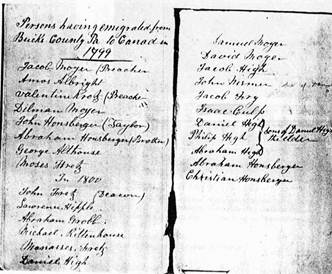 Persons having emigrated from
Bucks County Pa to Canada in
1799
Jacob Moyer (Preacher
Amos Albright
Valentine Kratz (Preacher
Dilman Moyer
John Honsberger (Taylor)
Abraham Honsberger (Brother)
George Althouse
Moses Fretz
In 1800
John Fretz (Deacon)
Lawrence Hipple
Abraham Grobb
Michael Rittenhouse
Manasses Fretz
Daniel High
Samuel Moyer
David Moyer
Jacob High
John
Jacob Fry
Isaac Culp
Daniel High
Philip High
Abraham High
sons of Daniel High
the elder
Abraham Honsberger
Christian Honsberger